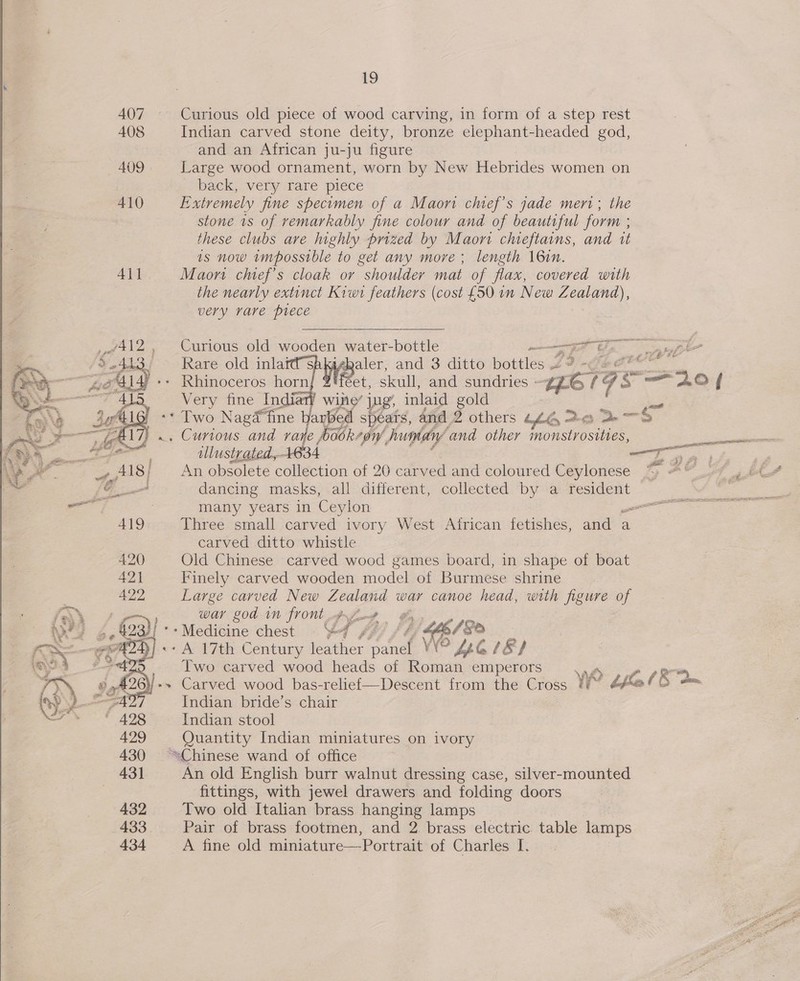 19
407 Curious old piece of wood carving, in form of a step rest
408 Indian carved stone deity, bronze elephant-headed god,
and an African ju-ju figure
409 Large wood ornament, worn by New Hebrides women on
back, very rare piece
410 Extremely fine specimen of a Maori chief's jade meri; the
stone is of remarkably fine colour and of beautiful form;
these clubs are highly prized by Maori chieftains, and it
is now impossible to get any more; length 16in.
411 Maori chief's cloak or shoulder mat of flax, covered with
the nearly extinct Kiwi feathers (cost £50 in New Zealand),
very rare piece
412 Curious old wooden water-bottle
413 Rare old inlaid, and 3 ditto bottles
414 Rhinoceros horn, feet, skull, and sundries
415 Very fine Indian wine jug, inlaid gold
416 Two Naga fine barbed spears, and 2 others
417 Curious and rare book on human and other monstrosities,
illustrated, 1634
418 An obsolete collection of 20 carved and coloured Ceylonese
dancing masks, all different, collected by a resident
many years in Ceylon
419 Three small carved ivory West African fetishes, and a
carved ditto whistle
420 Old Chinese carved wood games board, in shape of boat
421 Finely carved wooden model of Burmese shrine
422 Large carved New Zealand war canoe head, with figure of
war god in front
423 Medicine chest
424 A 17th Century leather panel
425 Two carved wood heads of Roman emperors
426 Carved wood bas-relief—Descent from the Cross
427 Indian bride's chair
428 Indian stool
429 Quantity Indian miniatures on ivory
430 Chinese wand of office
431 An old English burr walnut dressing case, silver-mounted
fittings, with jewel drawers and folding doors
432 Two old Italian brass hanging lamps
433 Pair of brass footmen, and 2 brass electric table lamps
434 A fine old miniature—Portrait of Charles I.